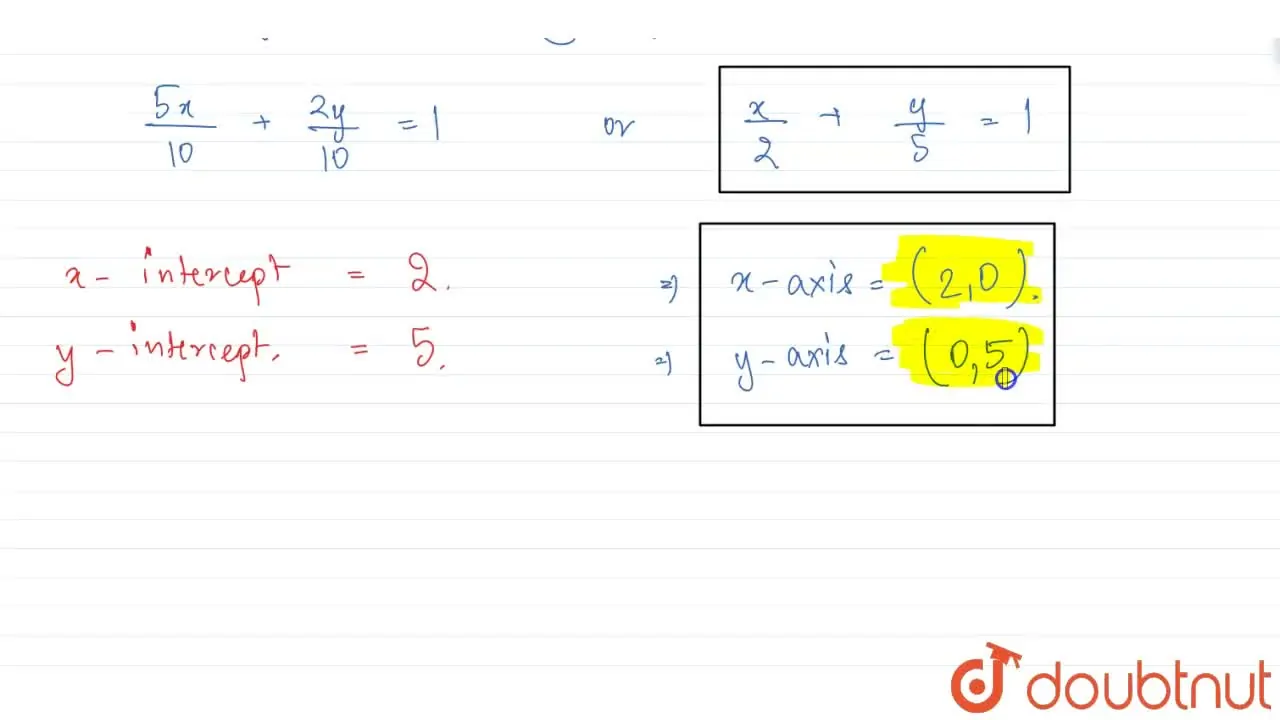 5x/10 + 2y/10 = 1 or x/2 + y/5 = 1
x - intercept = 2. ⇒ x - axis = (2,0).
y - intercept. = 5. ⇒ y - axis = (0,5)
doubtnut